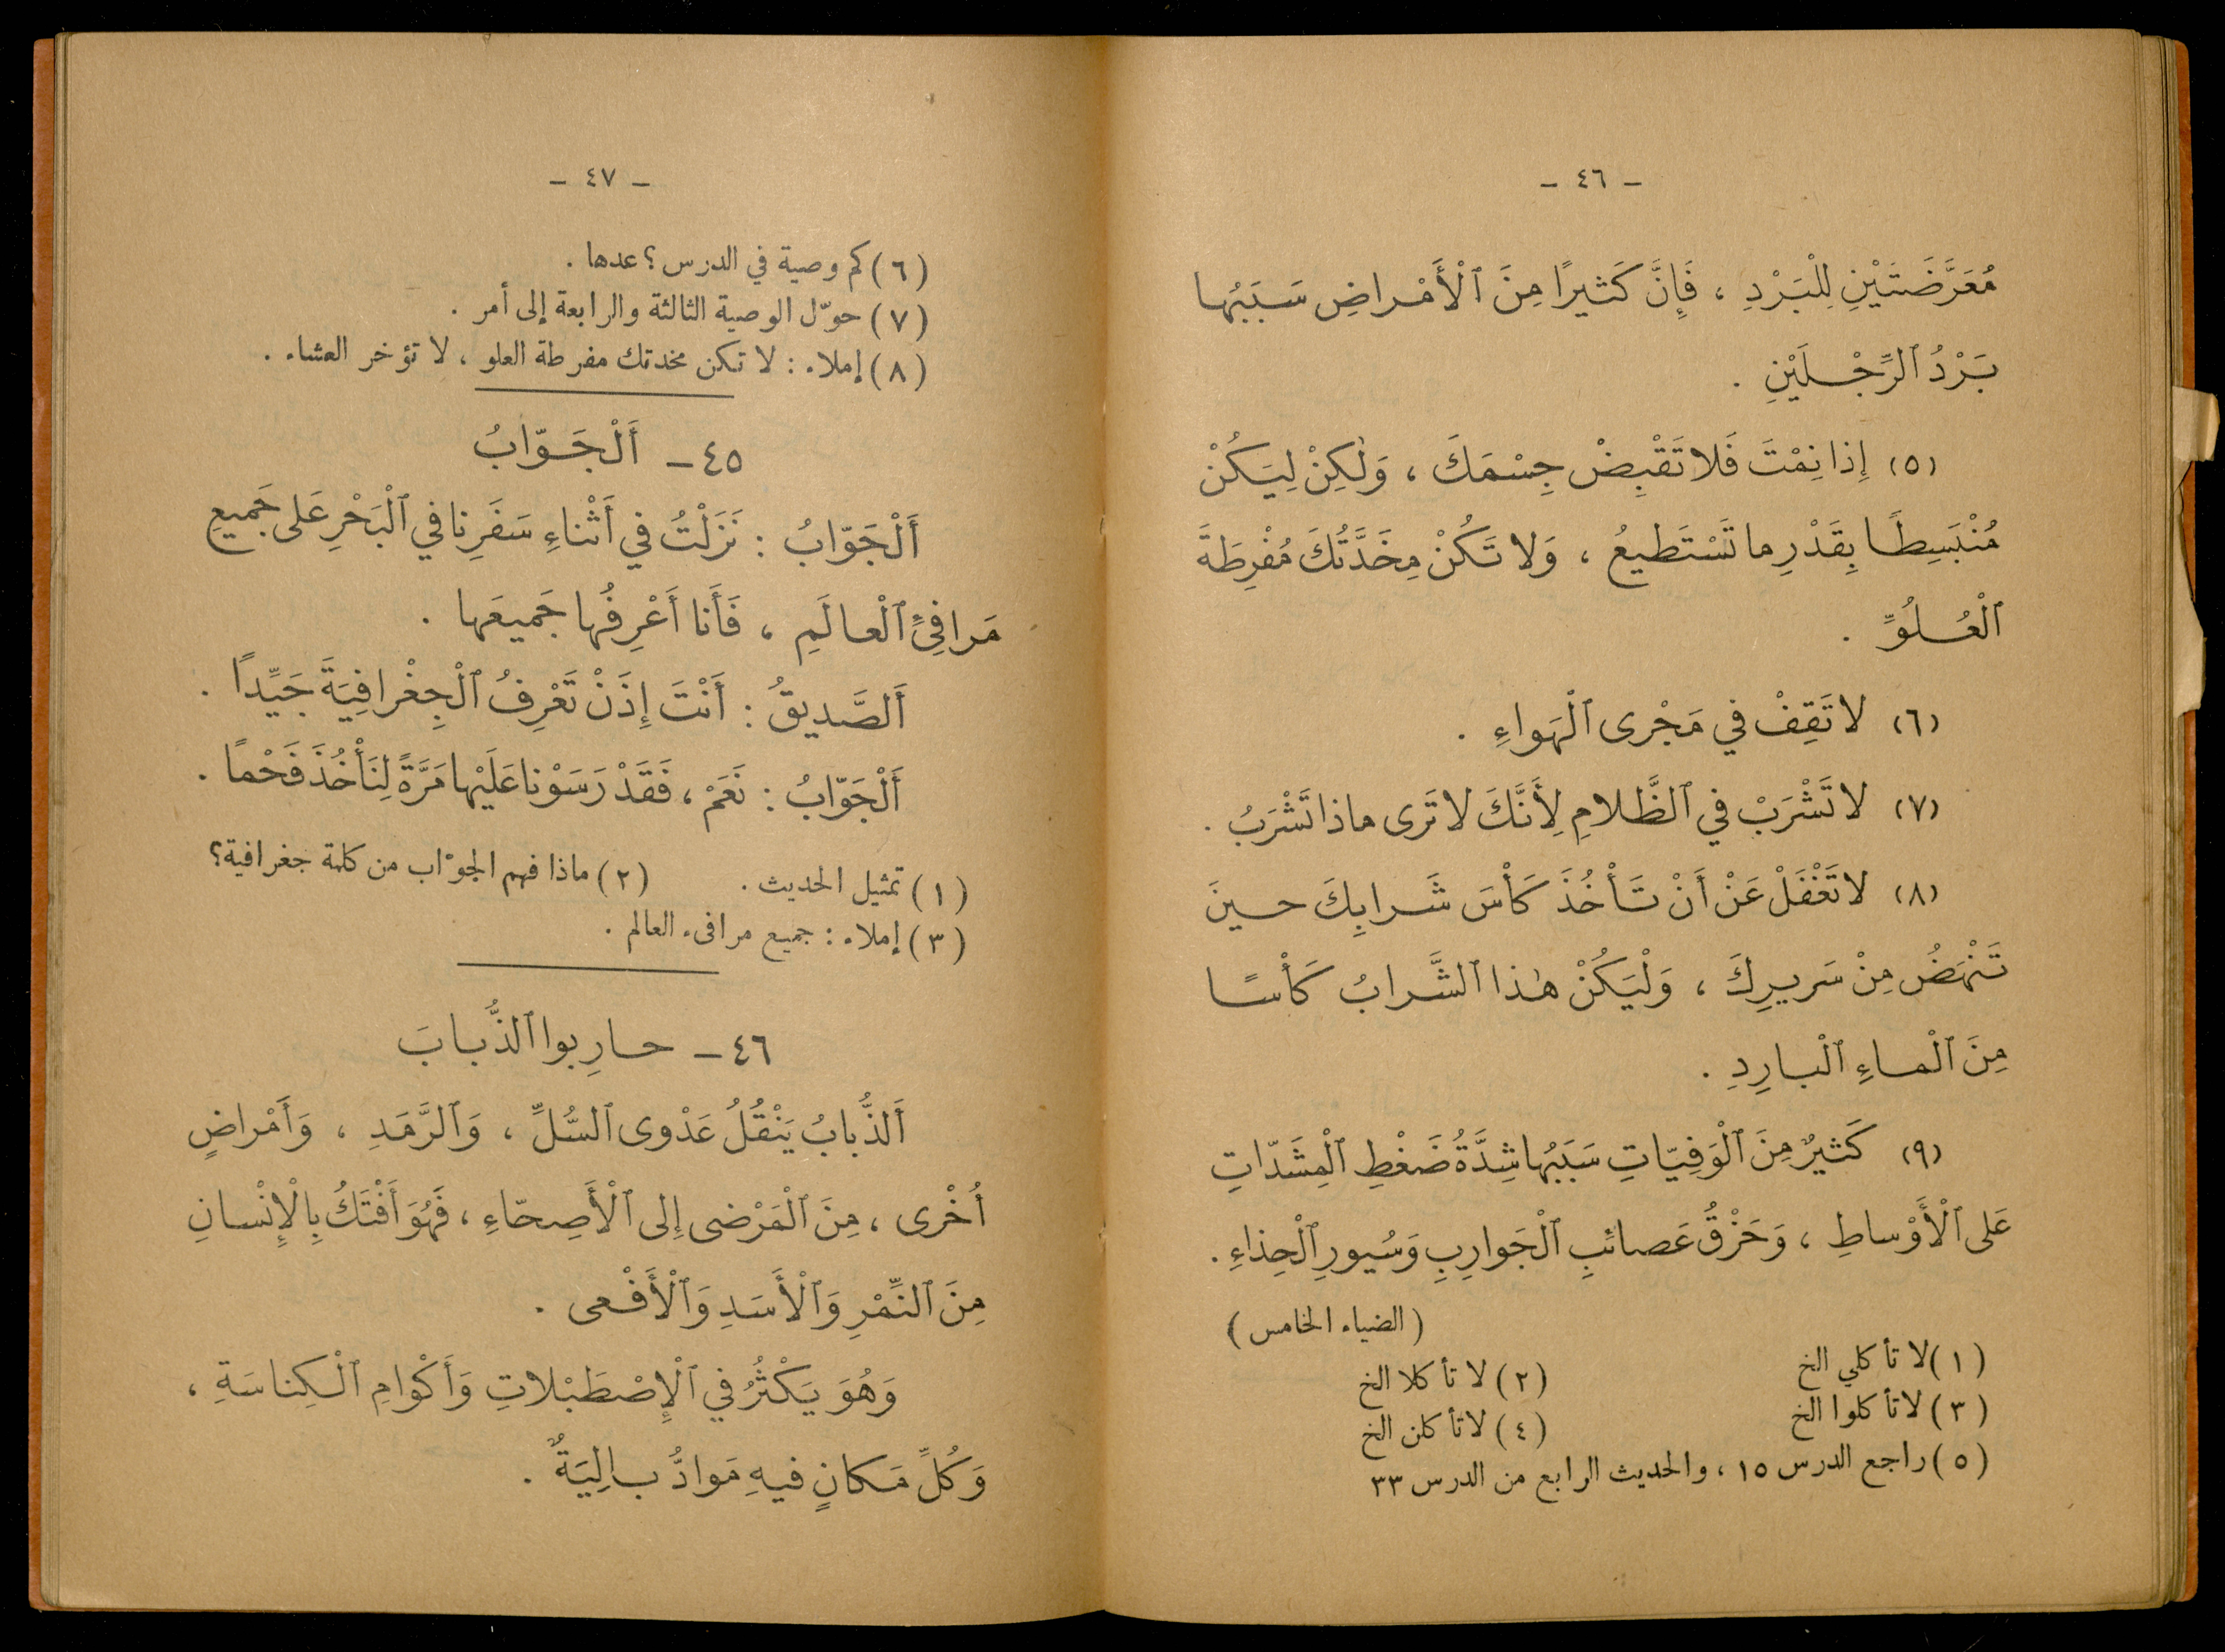 - ٤٦ -
مُعَرَّضَتَيْنِ لِلْبَرْدِ ، فَإِنَّ كَثيرًا مِنَ ٱلْأَمْراضِ سَبَبُها
بَرْدُ ٱلرِّجْلَيْنِ .
(٥) إِذا نِمْتَ فَلا تَقْبِضْ جِسْمَكَ ، وَلٰكِنْ لِيَكُنْ
مُنْبَسِطًا بِقَدْرِ ما تَسْتَطيعُ ، وَلا تَكُنْ مِخَدَّتُكَ مُفْرِطَةَ
ٱلْعُلُوِّ .
(٦) لا تَقِفْ في مَجْرى ٱلْهَواءِ .
(٧) لا تَشْرَبْ في ٱلظَّلامِ لِأَنَّكَ لا تَرى ماذا تَشْرَبُ .
(٨) لا تَغْفَلْ عَنْ أَنْ تَأْخُذَ كَأْسَ شَرابِكَ حينَ
تَنْهَضُ مِنْ سَريرِكَ ، وَلْيَكُنْ هٰذا ٱلشَّرابُ كَأْسًا
مِنَ ٱلْماءِ ٱلْبارِدِ .
(٩) كَثيرٌ مِنَ ٱلْوَفِيّاتِ سَبَبُها شِدَّةُ ضَغْطِ ٱلْمِشَدّاتِ
عَلى ٱلْأَوْساطِ ، وَحَزْقُ عَصائبِ ٱلْجَوارِبِ وَسُيورِ ٱلْحِذاءِ .
( الضياء الخامس )
( ١ ) لا تأكلي الخ ( ٢ ) لا تأكلا الخ
( ٣ ) لا تأكلوا الخ ( ٤ ) لا تأكلن الخ
( ٥ ) راجع الدرس ١٥ ، والحديث الرابع من الدرس ٣٣
- ٤٧ -
( ٦ ) كم وصية في الدرس ؟ عدها .
( ٧ ) حوّل الوصية الثالثة والرابعة إلى أمر .
( ٨ ) إملاء : لا تكن مخدتك مفرطة العلو ، لا تؤخر العشاء .
٤٥ - أَلْجَوّابُ
أَلْجَوّابُ : نَزَلْتُ في أَثْناءِ سَفَرِنا في ٱلْبَحْرِ عَلى جَميعِ
مَرافِئِ ٱلْعالَمِ ، فَأَنا أَعْرِفُها جَميعَها .
أَلصَّديقُ : أَنْتَ إِذَنْ تَعْرِفُ ٱلْجِغْرافِيَةَ جَيِّدًا .
أَلْجَوّابُ : نَعَمْ ، فَقَدْ رَسَوْنا عَلَيْها مَرَّةً لِنَأْخُذَ فَحْمًا .
( ١ ) تمثيل الحديث . ( ٢ ) ماذا فهم الجوّاب من كلمة جغرافية ؟
( ٣ ) إملاء : جميع مرافىء العالم .
٤٦ - حارِبوا ٱلذُّبابَ
أَلذُّبابُ يَنْقُلُ عَدْوى ٱلسُّلِّ ، وَٱلرَّمَدِ ، وَأَمْراضٍ
أُخْرى ، مِنَ ٱلْمَرْضى إِلى ٱلْأَصِحّاءِ ، فَهُوَ أَفْتَكُ بِٱلْإِنْسانِ
مِنَ ٱلنِّمْرِ وَٱلْأَسَدِ وَٱلْأَفْعى .
وَهُوَ يَكْثُرُ في ٱلْإِصْطَبْلاتِ وَأَكْوامِ ٱلْكِناسَةِ ،
وَكُلِّ مَكانٍ فيهِ مَوادُّ بالِيَةٌ .